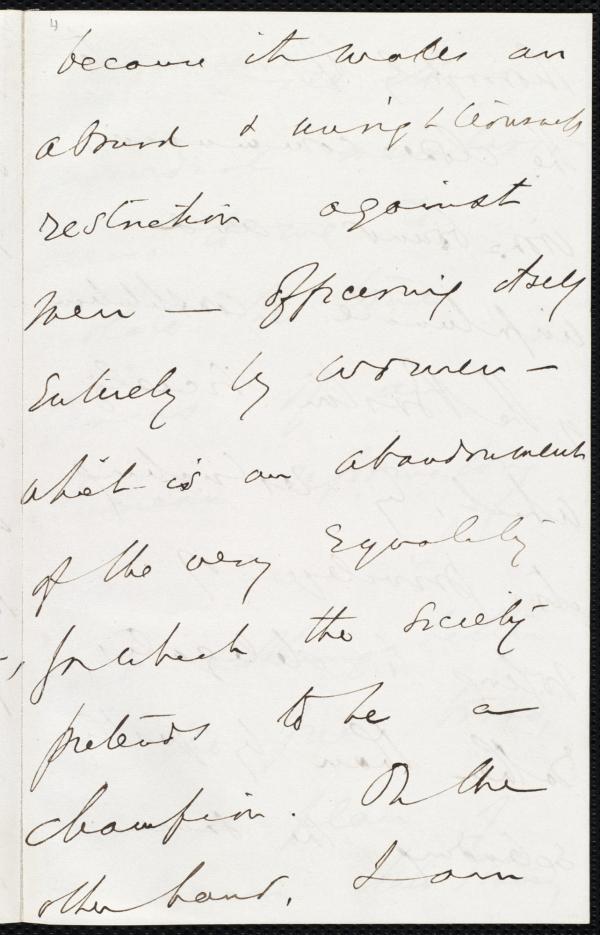 4
because it makes an
absurd & unrighteous
restriction against
men — officering itself
entirely by women —
which is an abandonment
of the very Equality
for which the Society
pretends to be a
champion. On the
other hand, I am